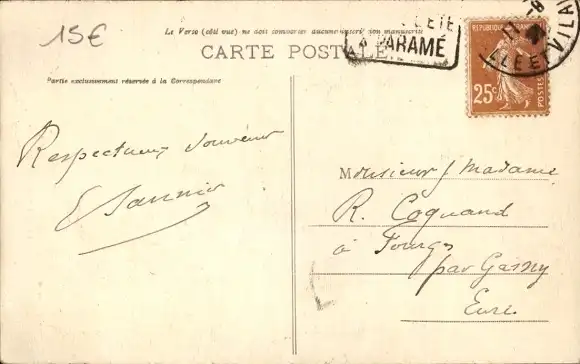 15€
Le Verso (côté vue) ne doit comporter aucune manuscrit
CARTE POSTALE
Partie exclusivement réservée à la Correspondance
ÉTÉ
À PARAMÉ
RÉPUBLIQUE FRANÇAISE
25c
POSTES
ILLE-ET-VILA
Respectueux souvenir
E Sannier
Monsieur / Madame
R. Coquand
à Fourges
par Gasny
Eure